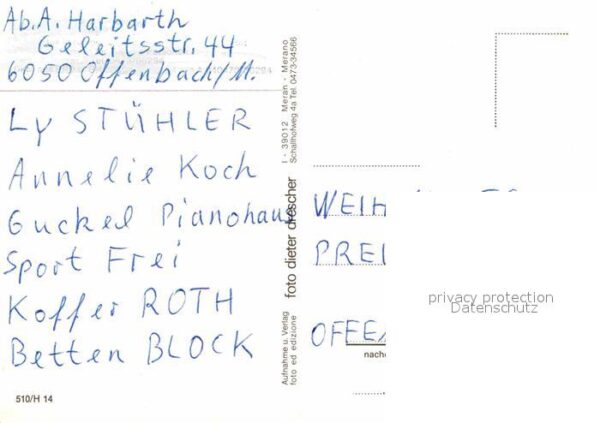 Ab.A. Harbarth
Geleitsstr. 44
6050 Offenbach/M.
Ly STÜHLER
Annelie Koch
Guckel Pianohaus
Sport Frei
Koffer ROTH
Betten BLOCK
510/H 14
Aufnahme u. Verlag
foto ed edizione
foto dieter drescher
I - 39012 Meran - Merano
Schallhofweg 4a Tel. 0473-34566
WEIH
PREI
OFFE
nach
privacy protection
Datenschutz